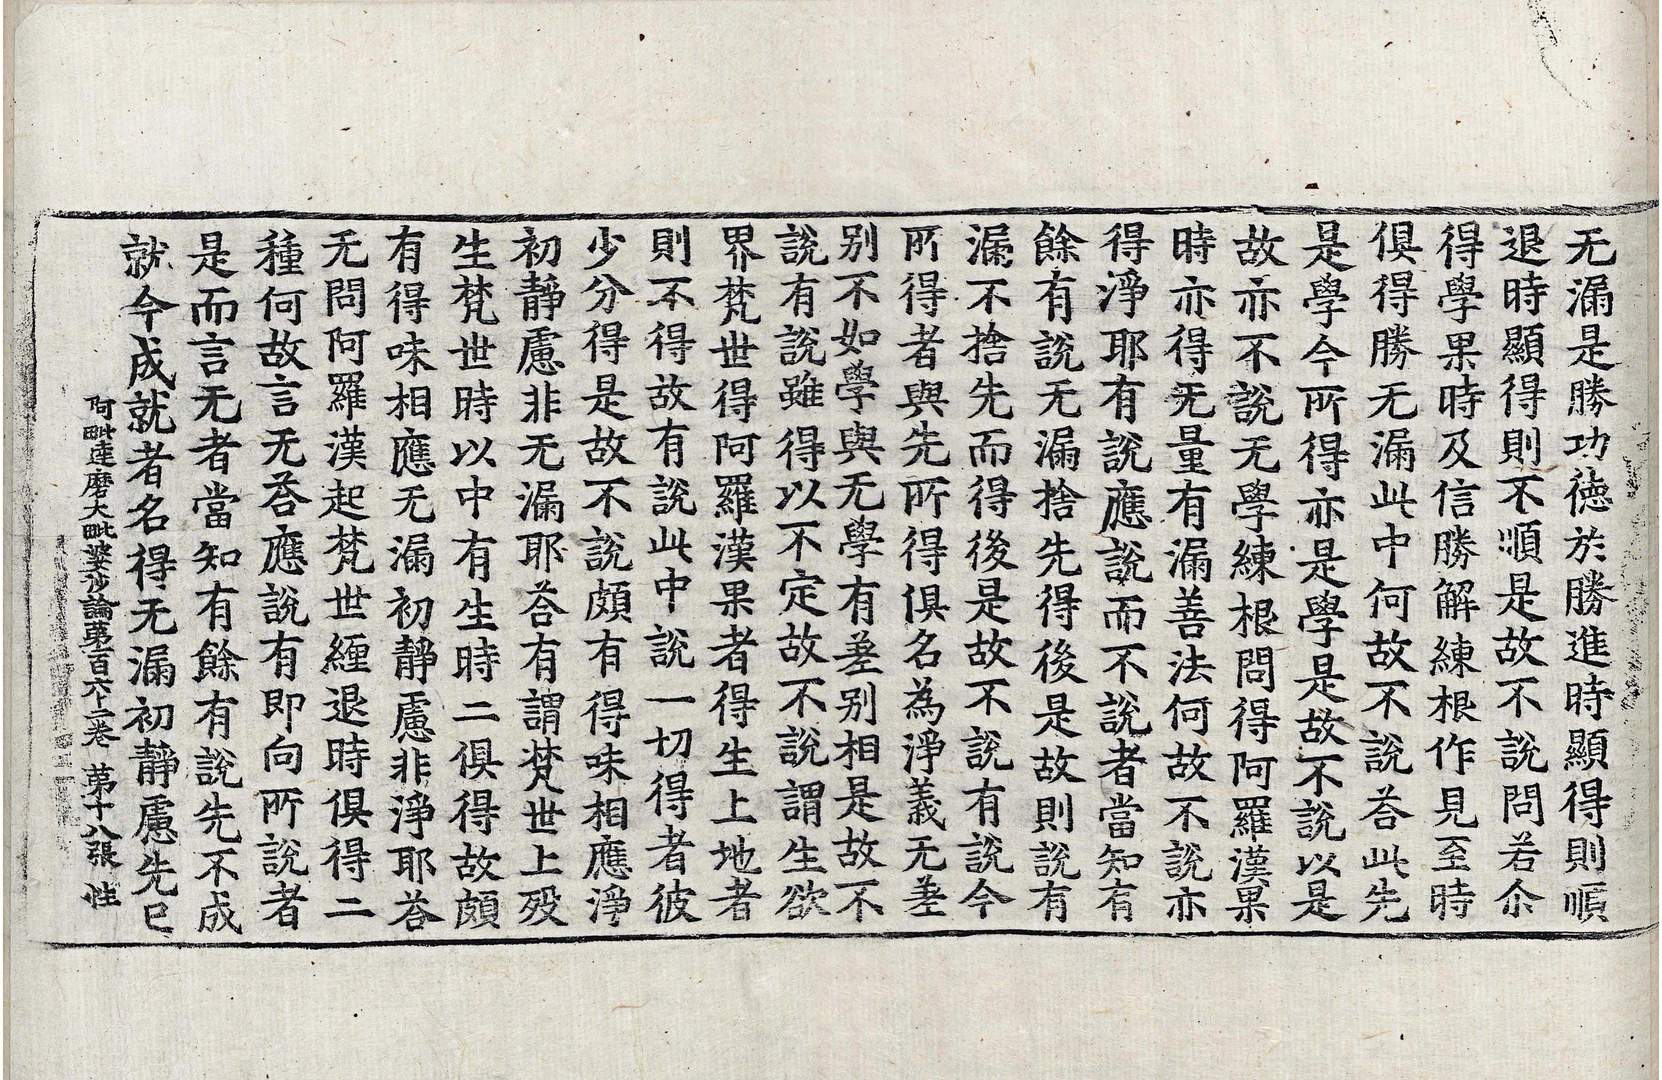 无漏是勝功德於勝進時顯得則順
退時顯得則不順是故不說問若尒
得學果時及信勝解練根作見至時
俱得勝无漏此中何故不說荅此先
是學今所得亦是學是故不說以是
故亦不說无學練根問得阿羅漢果
時亦得无量有漏善法何故不說亦
得淨耶有說應說而不說者當知有
餘有說无漏捨先得後是故則說有
漏不捨先而得後是故不說有說今
所得者與先所得俱名為淨義无差
別不如學與无學有差別相是故不
說有說雖得以不定故不說謂生欲
界梵世得阿羅漢果者得生上地者
則不得故有說此中說一切得者彼
少分得是故不說頗有得味相應淨
初靜慮非无漏耶荅有謂梵世上歿
生梵世時以中有生時二俱得故頗
有得味相應无漏初靜慮非淨耶荅
无問阿羅漢起梵世纏退時俱得二
種何故言无荅應說有即向所說者
是而言无者當知有餘有說先不成
就今成就者名得无漏初靜慮先已
阿毗達磨大毗婆沙論苐百六十二卷 苐十八張 性